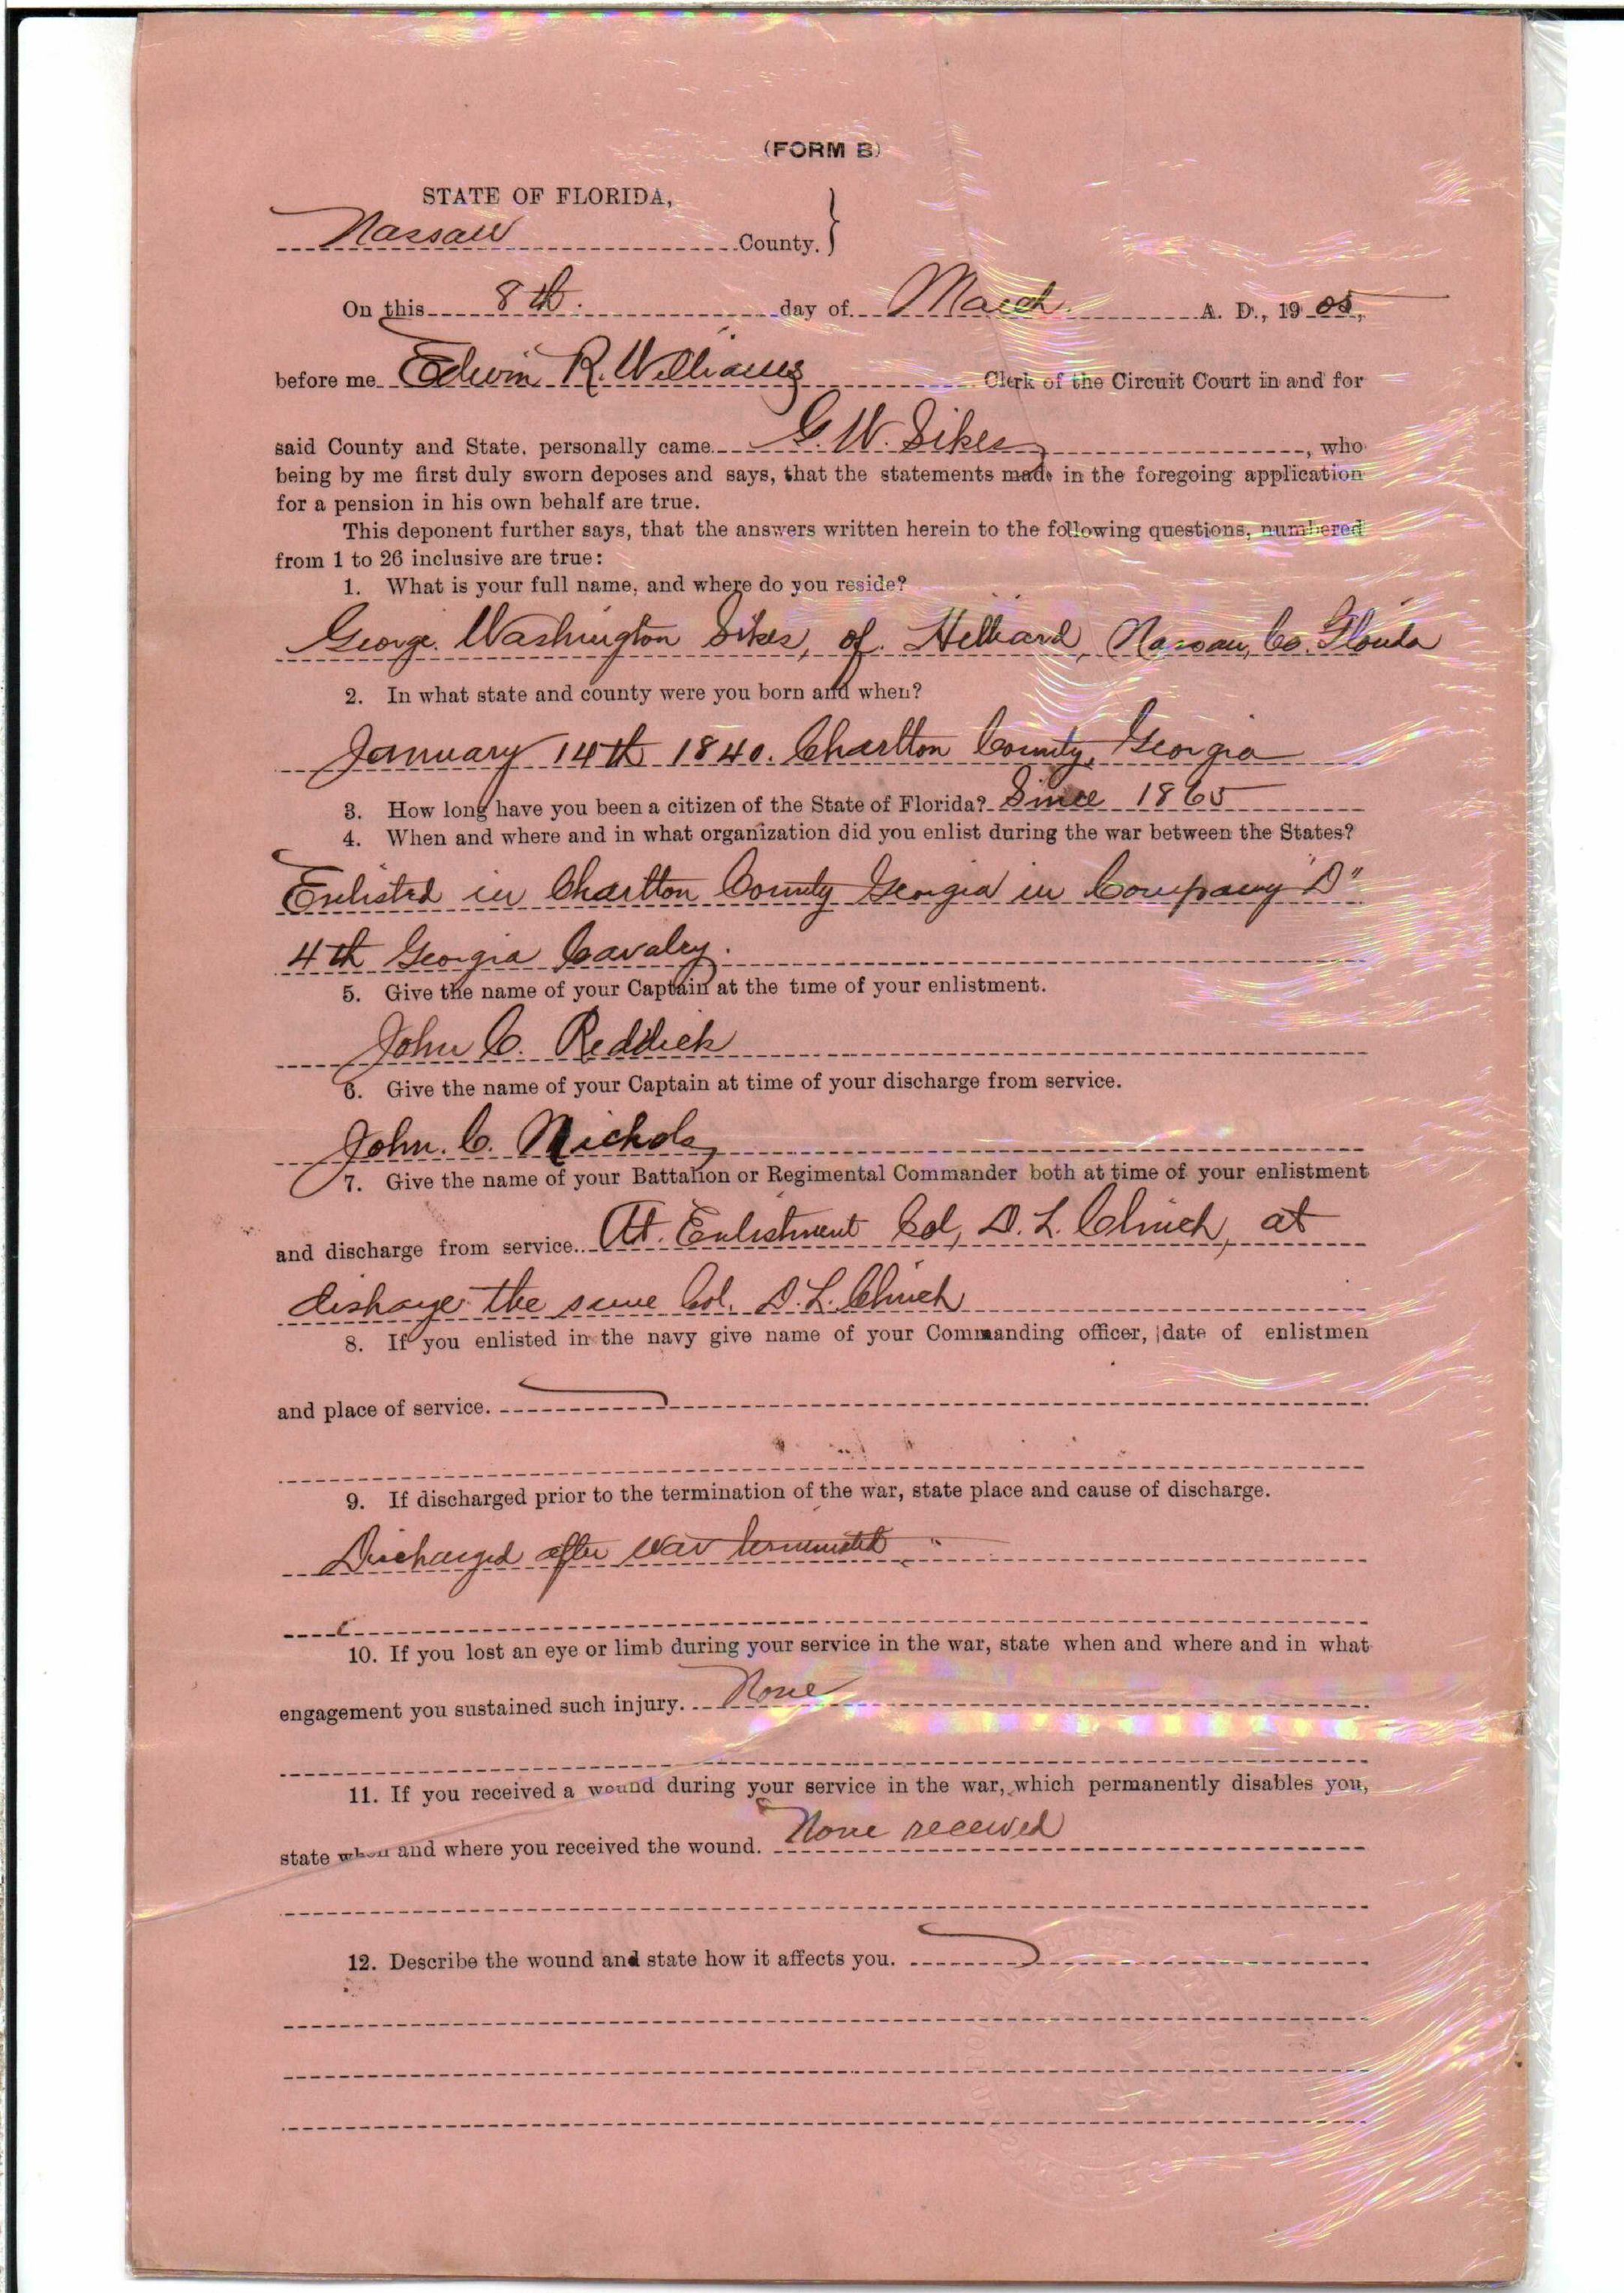 (FORM B)
STATE OF FLORIDA,
Nassau County.
On this 8th. day of March. A. D., 1905,
before me Edwin R. Williams Clerk of the Circuit Court in and for
said County and State, personally came G. W. Sikes, who
being by me first duly sworn deposes and says, that the statements made in the foregoing application
for a pension in his own behalf are true.
This deponent further says, that the answers written herein to the following questions, numbered
from 1 to 26 inclusive are true:
1. What is your full name, and where do you reside?
George. Washington Sikes, of. Hilliard, Nassau, Co. Florida
2. In what state and county were you born and when?
January 14th 1840. Charlton County, Georgia
3. How long have you been a citizen of the State of Florida? Since 1865
4. When and where and in what organization did you enlist during the war between the States?
Enlisted in Charlton County Georgia in Company "D"
4th Georgia Cavalry.
5. Give the name of your Captain at the time of your enlistment.
John C. Reddick
6. Give the name of your Captain at time of your discharge from service.
John. C. Nichols
7. Give the name of your Battalion or Regimental Commander both at time of your enlistment
and discharge from service. At. Enlistment Col, D. L. Clinch, at
disharge the same Col. D. L. Clinch
8. If you enlisted in the navy give name of your Commanding officer, date of enlistmen
and place of service.
9. If discharged prior to the termination of the war, state place and cause of discharge.
Discharged after war terminated
10. If you lost an eye or limb during your service in the war, state when and where and in what
engagement you sustained such injury. None
11. If you received a wound during your service in the war, which permanently disables you,
state when and where you received the wound. None received
12. Describe the wound and state how it affects you.